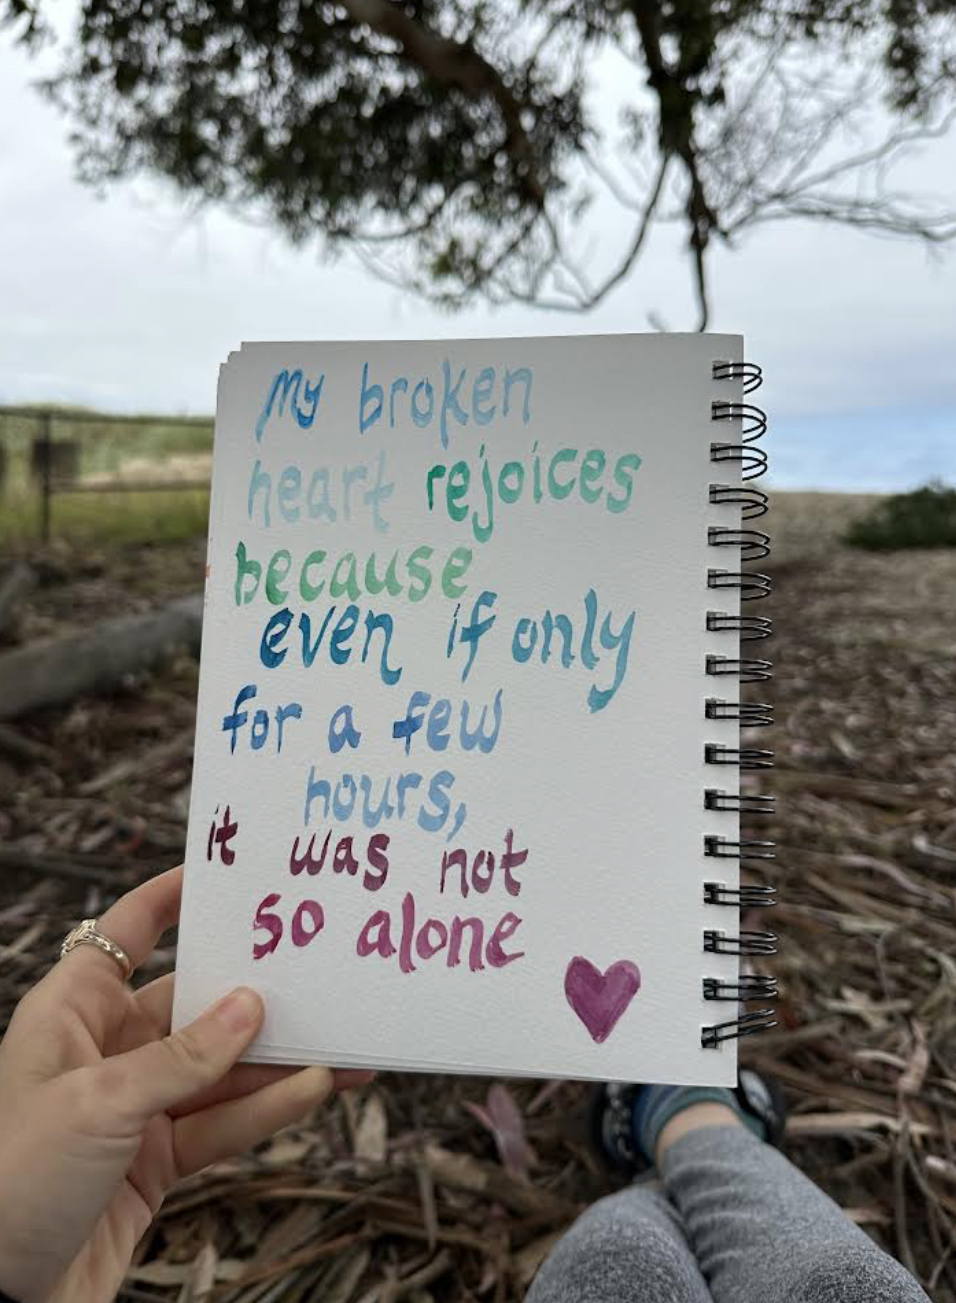 My broken
heart rejoices
because
even if only
for a few
hours,
it was not
so alone